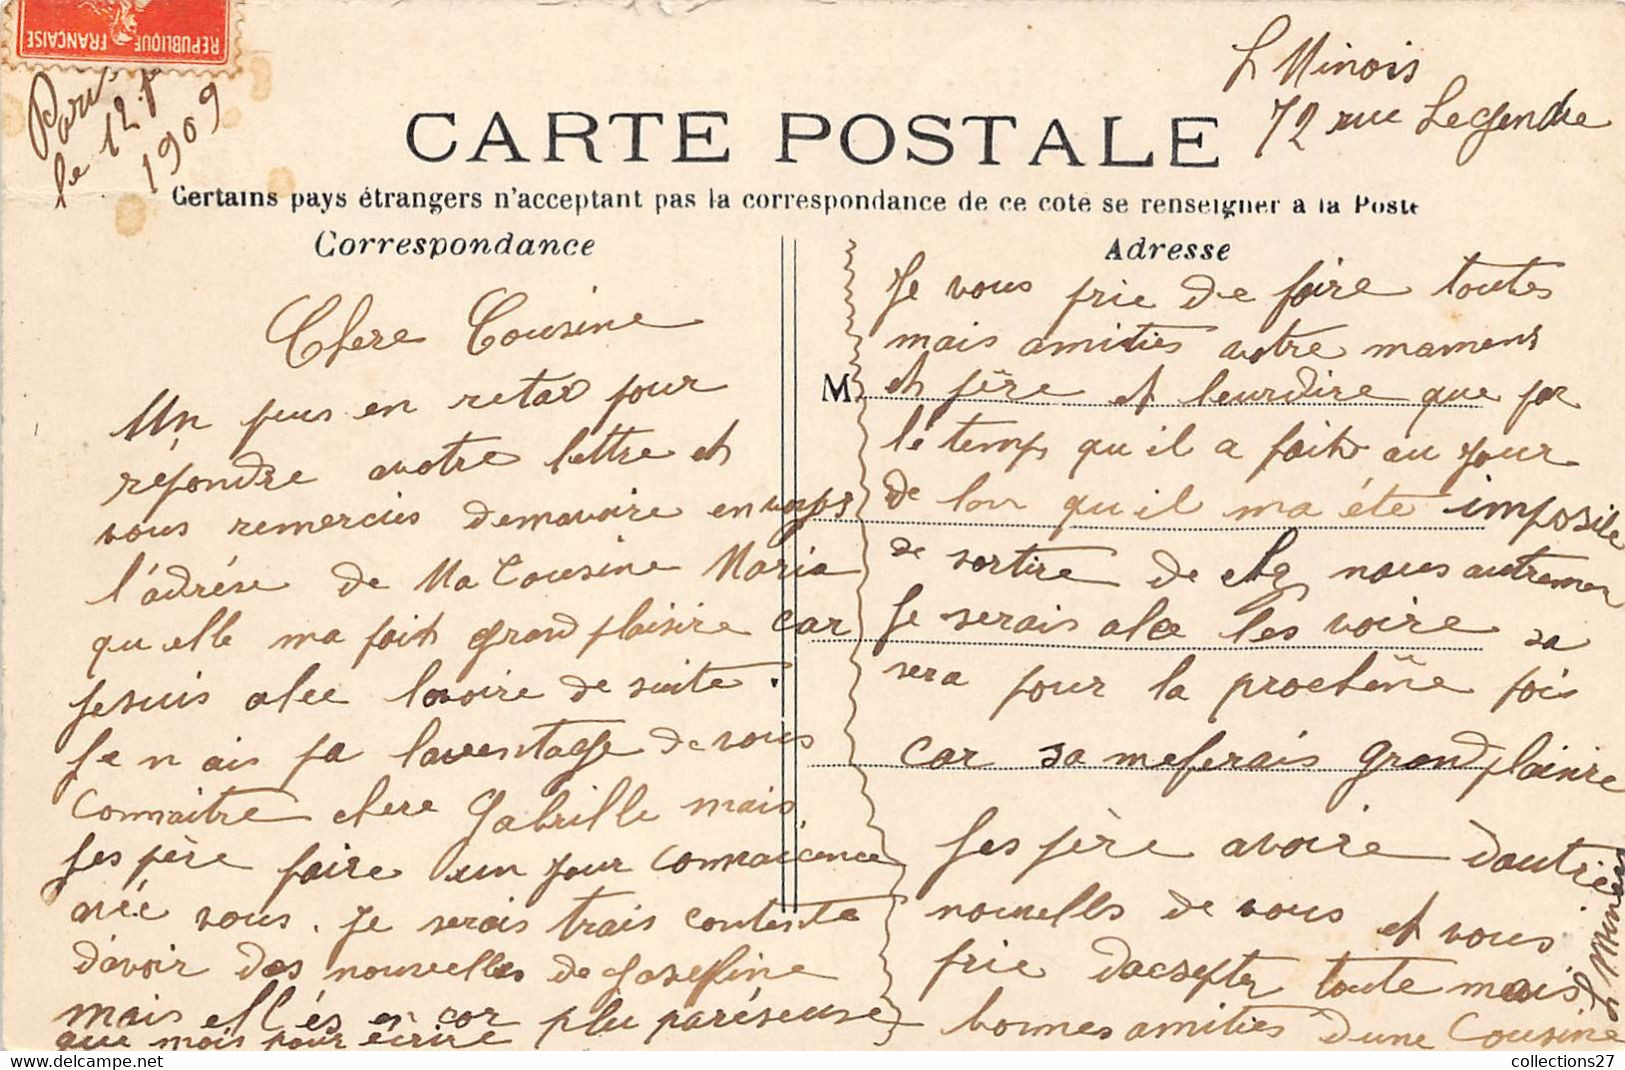 REPUBLIQUE FRANÇAISE
Paris
le 12
1909
L Minois
72 rue Legendre
CARTE POSTALE
Certains pays étrangers n'acceptant pas la correspondance de ce coté se renseigner à la Poste
Correspondance
Chere Cousine
Un peus en retar pour
répondre avotre lettre et
vous remercies demavoire envoyé
l'adrése de Ma Cousine Maria
qu elle ma fait grand plaisire car
Jesuis alee lavoire de suite.
Je n ais pa laventage de vous
Connaitre chere Gabrille mais
Jespère faire un jour connaicence
avéc vous. Je serais trais contente
d'avoir des nouvelles de Josefine
mais ell és en cor plu paréseuse
que mois pour écrire
Adresse
M
Je vous prie de faire toutes
mais amities avotre mamens
et père et leurdire que par
le temps qu il a fait au jour
de lan qu il ma éte imposile
de sortire de chez nous autremen
Je serais alee les voire sa
sera pour la prochène fois
car sa meferais grand plaisire
Jespère avoire dautres
nouvelles de vous et vous
prie dacsepter toute mais
bonnes amities dune Cousine
L Minois
collections27